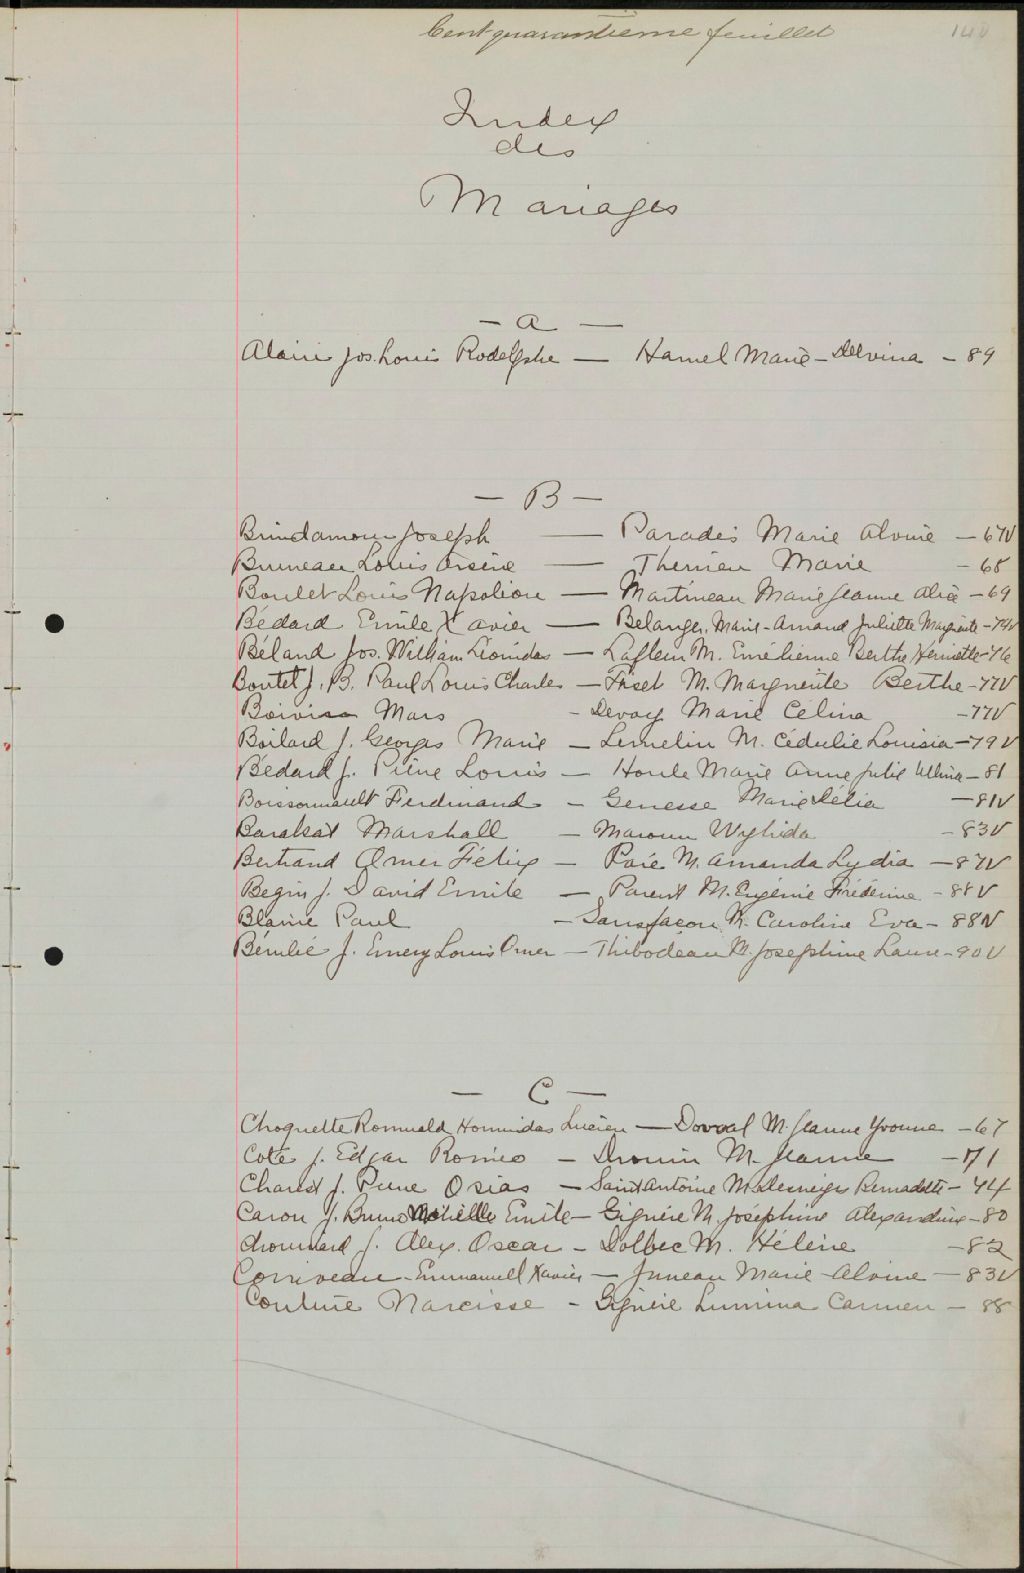 Cent quarantième feuillet 140
Index
des
Mariages
- A -
Alain Jos. Louis Rodolphe - Hamel Marie-Delvina - 89
- B -
Brindamour Joseph - Paradis Marie Alvine - 67V
Bruneau Louis Arsène - Therrien Marie - 68
Boulet Louis Napoléon - Martineau Marie Jeanne Alice - 69
Bédard Emile Xavier - Belanger Marie-Amand Juliette Marguerite - 74V
Béland Jos. William Léonidas - Lafleur M. Emélienne Berthe Henriette - 76
Boutet J. B. Paul Louis Charles - Fiset M. Marguerite Berthe - 77V
Boivin Mars - Devoy Marie Célina - 77V
Boilard J. Georges Marie - Lemelin M. Cédulie Louisia - 79V
Bedard J. Pierre Louis - Houle Marie Anne Julie - 81
Boissonnault Ferdinand - Genesse Marie Célia - 81V
Barakat Marshall - Maroun Wyhida - 83V
Bertrand Omer Félix - Paré M. Amanda Lydia - 87V
Begin J. David Emile - Parent M. Eugénie - 88V
Blaine Paul - Sansfaçon M. Caroline Eva - 88V
Bérubé J. Emery Louis Omer - Thibodeau M. Josephine Laure - 90V
- C -
Choquette Romuald Hormidas Lucien - Dorval M. Jeanne Yvonne - 67
Coté J. Edgar Roméo - Drouin M. Jeanne - 71
Charest J. Pierre Osias - Saint Antoine M. des neiges Bernadette - 74
Caron J. Bruno Emile - Gignère M. Joséphine Alexandrine - 80
Chouinard J. Alex. Oscar - Dolbec M. Hélène - 82
Corriveau Emmanuel Xavier - Juneau Marie Alvine - 83V
Couture Narcisse - Gignère Lumina Carmen - 88